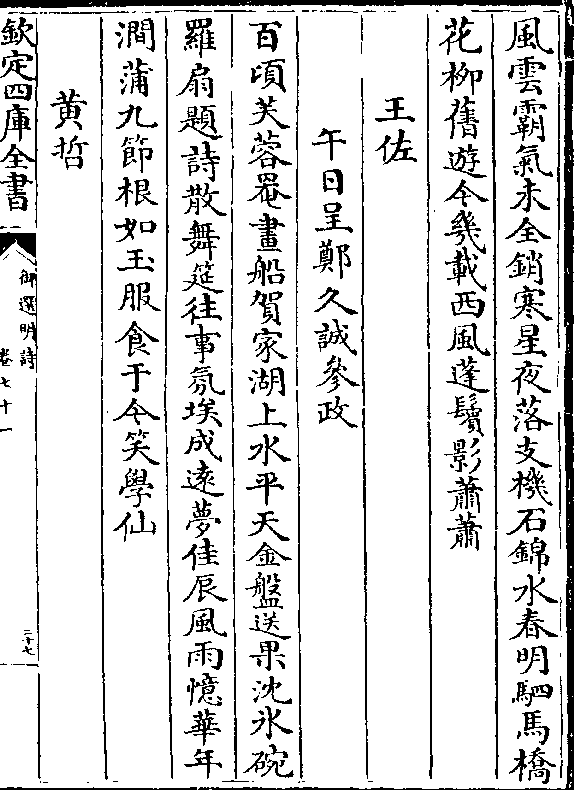 風雲霸氣未全銷寒星夜落支機石錦水春明駟馬橋
花栁舊遊今幾載西風蓬鬢影蕭蕭
王佐
午日呈鄭久誠參政
百頃芙蓉罨畫船賀家湖上水平天金盤送果沈氷碗
羅扇題詩散舞筵往事氛埃成遠夢佳辰風雨憶華年
澗蒲九節根如玉服食于今笑學仙
黄哲
欽定四庫全書
御選明詩
卷七十一
三十七